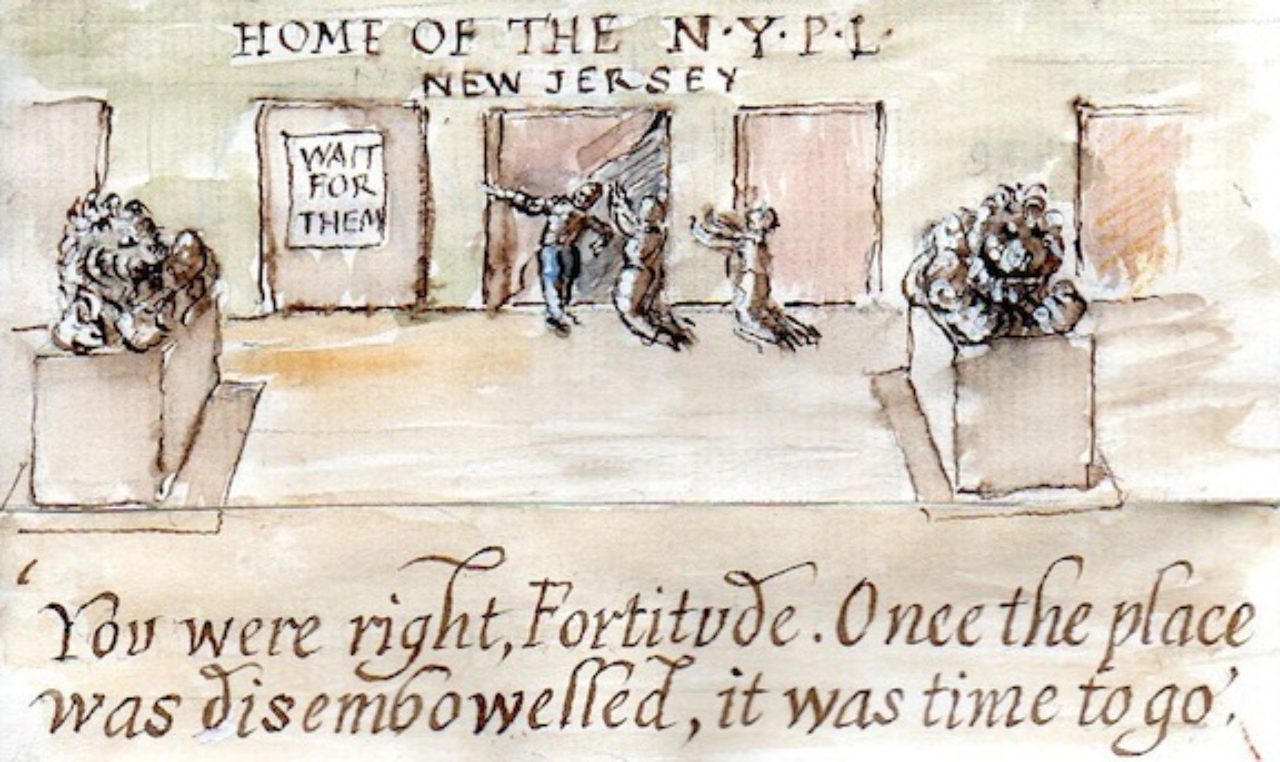 HOME OF THE N·Y·P·L·
NEW JERSEY
WAIT
FOR
THEM
'You were right, Fortitude. Once the place
was disembowelled, it was time to go'.